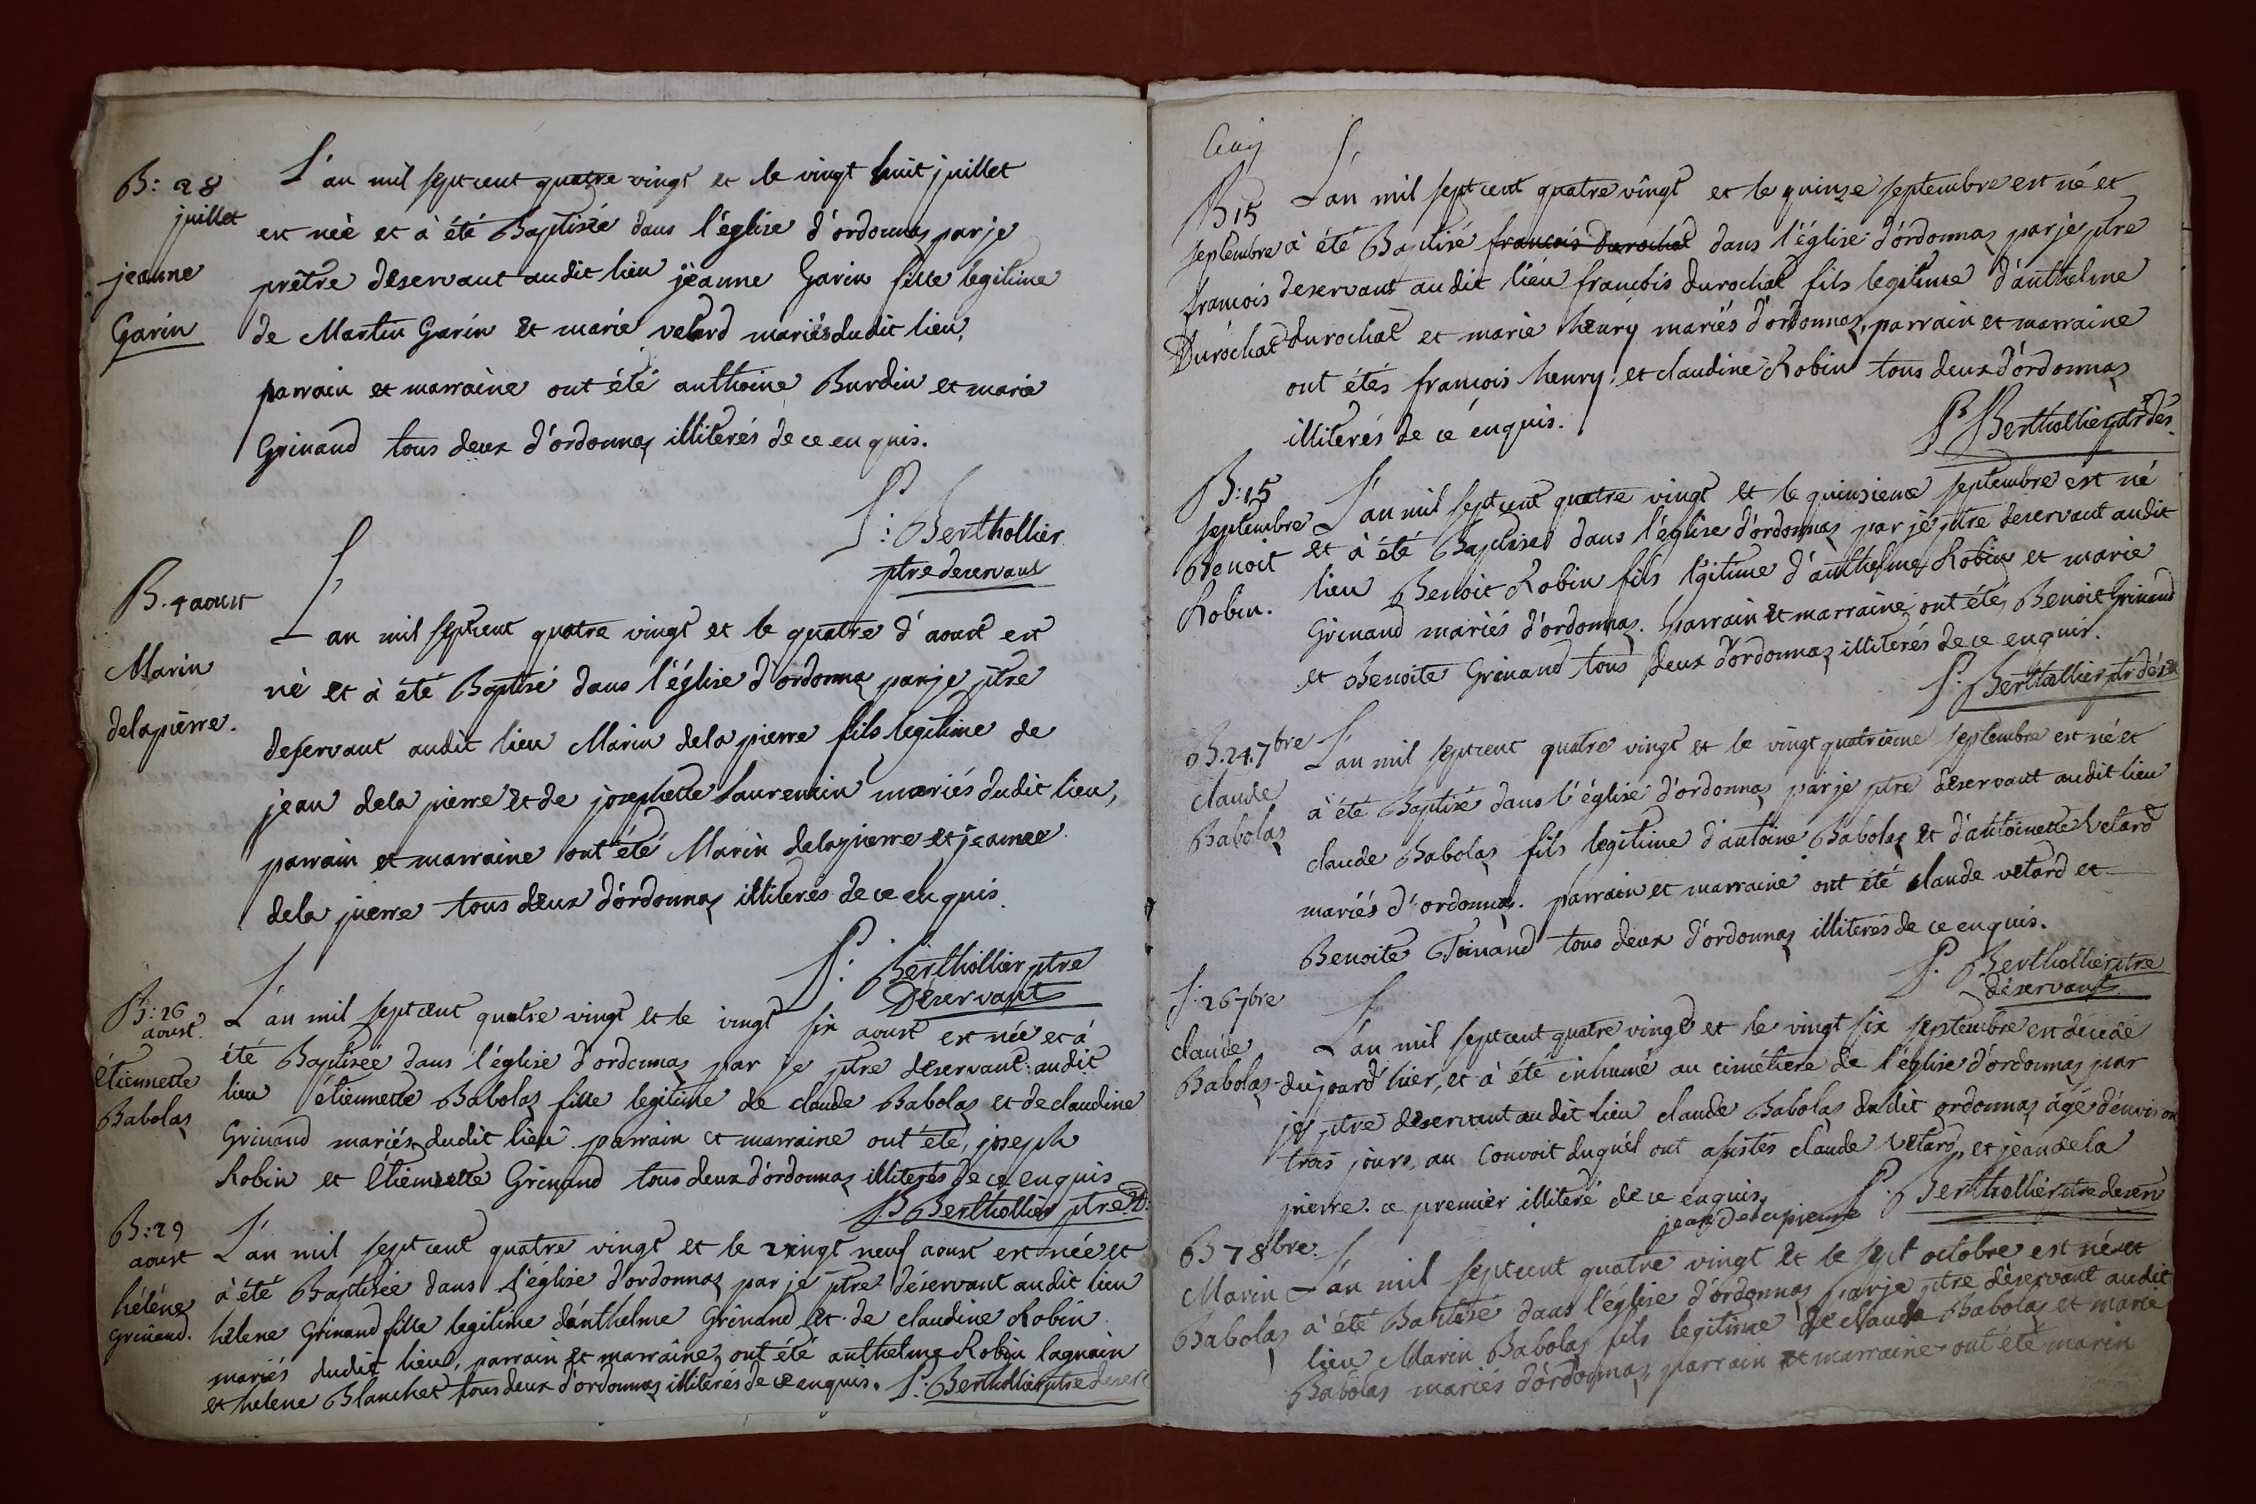 B: 28
juillet
jeanne
Garin
L'an mil sept cent quatre vingt et le vingt huit juillet
est néè et à été Baptisée dans l'église d'ordonnaz par je
prêtre deservant audit lieu jeanne Garin fille legitime
de Martin Garin et marie vetard mariés dudit lieu,
parrain et marraine ont été anthoine Burdin et marie
Grinand tous deux d'ordonnaz illiterés de ce enquis.
P: Berthollier
ptre deservant
B. 4 aoust
Marin
delapierre.
L'an mil sept cent quatre vingt et le quatre d'aoust est
né et à été Baptisé dans l'église d'ordonnaz par je ptre
deservant audit lieu Marin dela pierre fils legitime de
jean dela pierre et de josephette laurencin mariés dudit lieu,
parrain et marraine ont été Marin delapierre et jeanne
dela pierre tous deux d'ordonnaz illiterés de ce enquis.
P: Berthollier ptre
Déservant
B: 26
aoust.
étiennette
Babolaz
L'an mil sept cent quatre vingt et le vingt six aoust est née et à
été Baptisée dans l'église d'ordonnaz par je ptre deservant audit
lieu étiennette Babolaz fille legitime de claude Babolaz et de claudine
Grinand mariés dudit lieu. parrain et marraine ont été, joseph
Robin et étiennette Grinand tous deux d'ordonnaz illiterés de ce enquis
P Berthollier ptre D:
B: 29
aoust
héléne
Grinand.
L'an mil sept cent quatre vingt et le vingt neuf aoust est née et
à été Baptisée dans l'église d'ordonnaz par je ptre déservant audit lieu
helene Grinand fille legitime d'anthelme Grinand et de claudine Robin
mariés dudit lieu, parrain et marraine, ont été anthelme Robin lagnain
et helene Blanchet tous deux d'ordonnaz illiterés de ce enquis. P: Berthollier ptre deser
Cinq
B 15
septembre
francois
Durochat
L'an mil sept cent quatre vingt et le quinze septembre est né et
à été Baptisé francois Durochat dans l'église d'ordonnaz par je ptre
deservant audit lieu francois durochat fils legitime d'anthelme
durochat et marie henry mariés d'ordonnaz, parrain et marraine
ont étés francois henry, et claudine Robin tous deux d'ordonnaz
illiterés de ce enquis.
P Berthollier ptr dés.
B: 15
septembre
Benoit
Robin.
L'an mil sept cent quatre vingt et le quinsieme septembre est né
et à été Baptisé dans l'église d'ordonnaz par je ptre deservant audit
lieu Benoit Robin fils légitime d'anthelme Robin et marie
Grinand mariés d'ordonnaz. parrain et marraine ont étés Benoit Grinand
et Benoite Grinand tous deux d'ordonnaz illiterés de ce enquis.
P: Berthollier ptr dés
B. 24. 7bre
claude
Babolaz
L'an mil sept cent quatre vingt et le vingt quatrieme septembre est né et
à été Baptisé dans l'église d'ordonnaz par je ptre déservant audit lieu
claude Babolaz fils legitime d'antoine Babolaz et d'antoinette Vetard
mariés d'ordonnaz. parrain et marraine ont été claude vetard et
Benoite tous deux d'ordonnaz illiterés de ce enquis.
P. Berthollier ptre
déservant
S. 26 7bre
claude
Babolaz
L'an mil sept cent quatre vingt et le vingt six septembre est décedé
du jourd'hier, et à été inhumé au cimétiere de l'église d'ordonnaz par
je ptre déservant au dit lieu claude Babolaz dudit ordonnaz âgé d'environ
trois jours, au Convoit duquel ont assistés claude Vétard, et jean de la
pierre. ce premier illiteré de ce enquis,
jean delapierre P. Berthollier ptre deserv
B 7 8bre
Marin
Babolaz
L'an mil sept cent quatre vingt et le sept octobre est né et
à été Batisé dans l'église d'ordonnaz par je ptre déservant audit
lieu Marin Babolaz fils legitime de claude Babolaz et marie
Babolaz mariés d'ordonnaz, parrain et marraine ont été marin